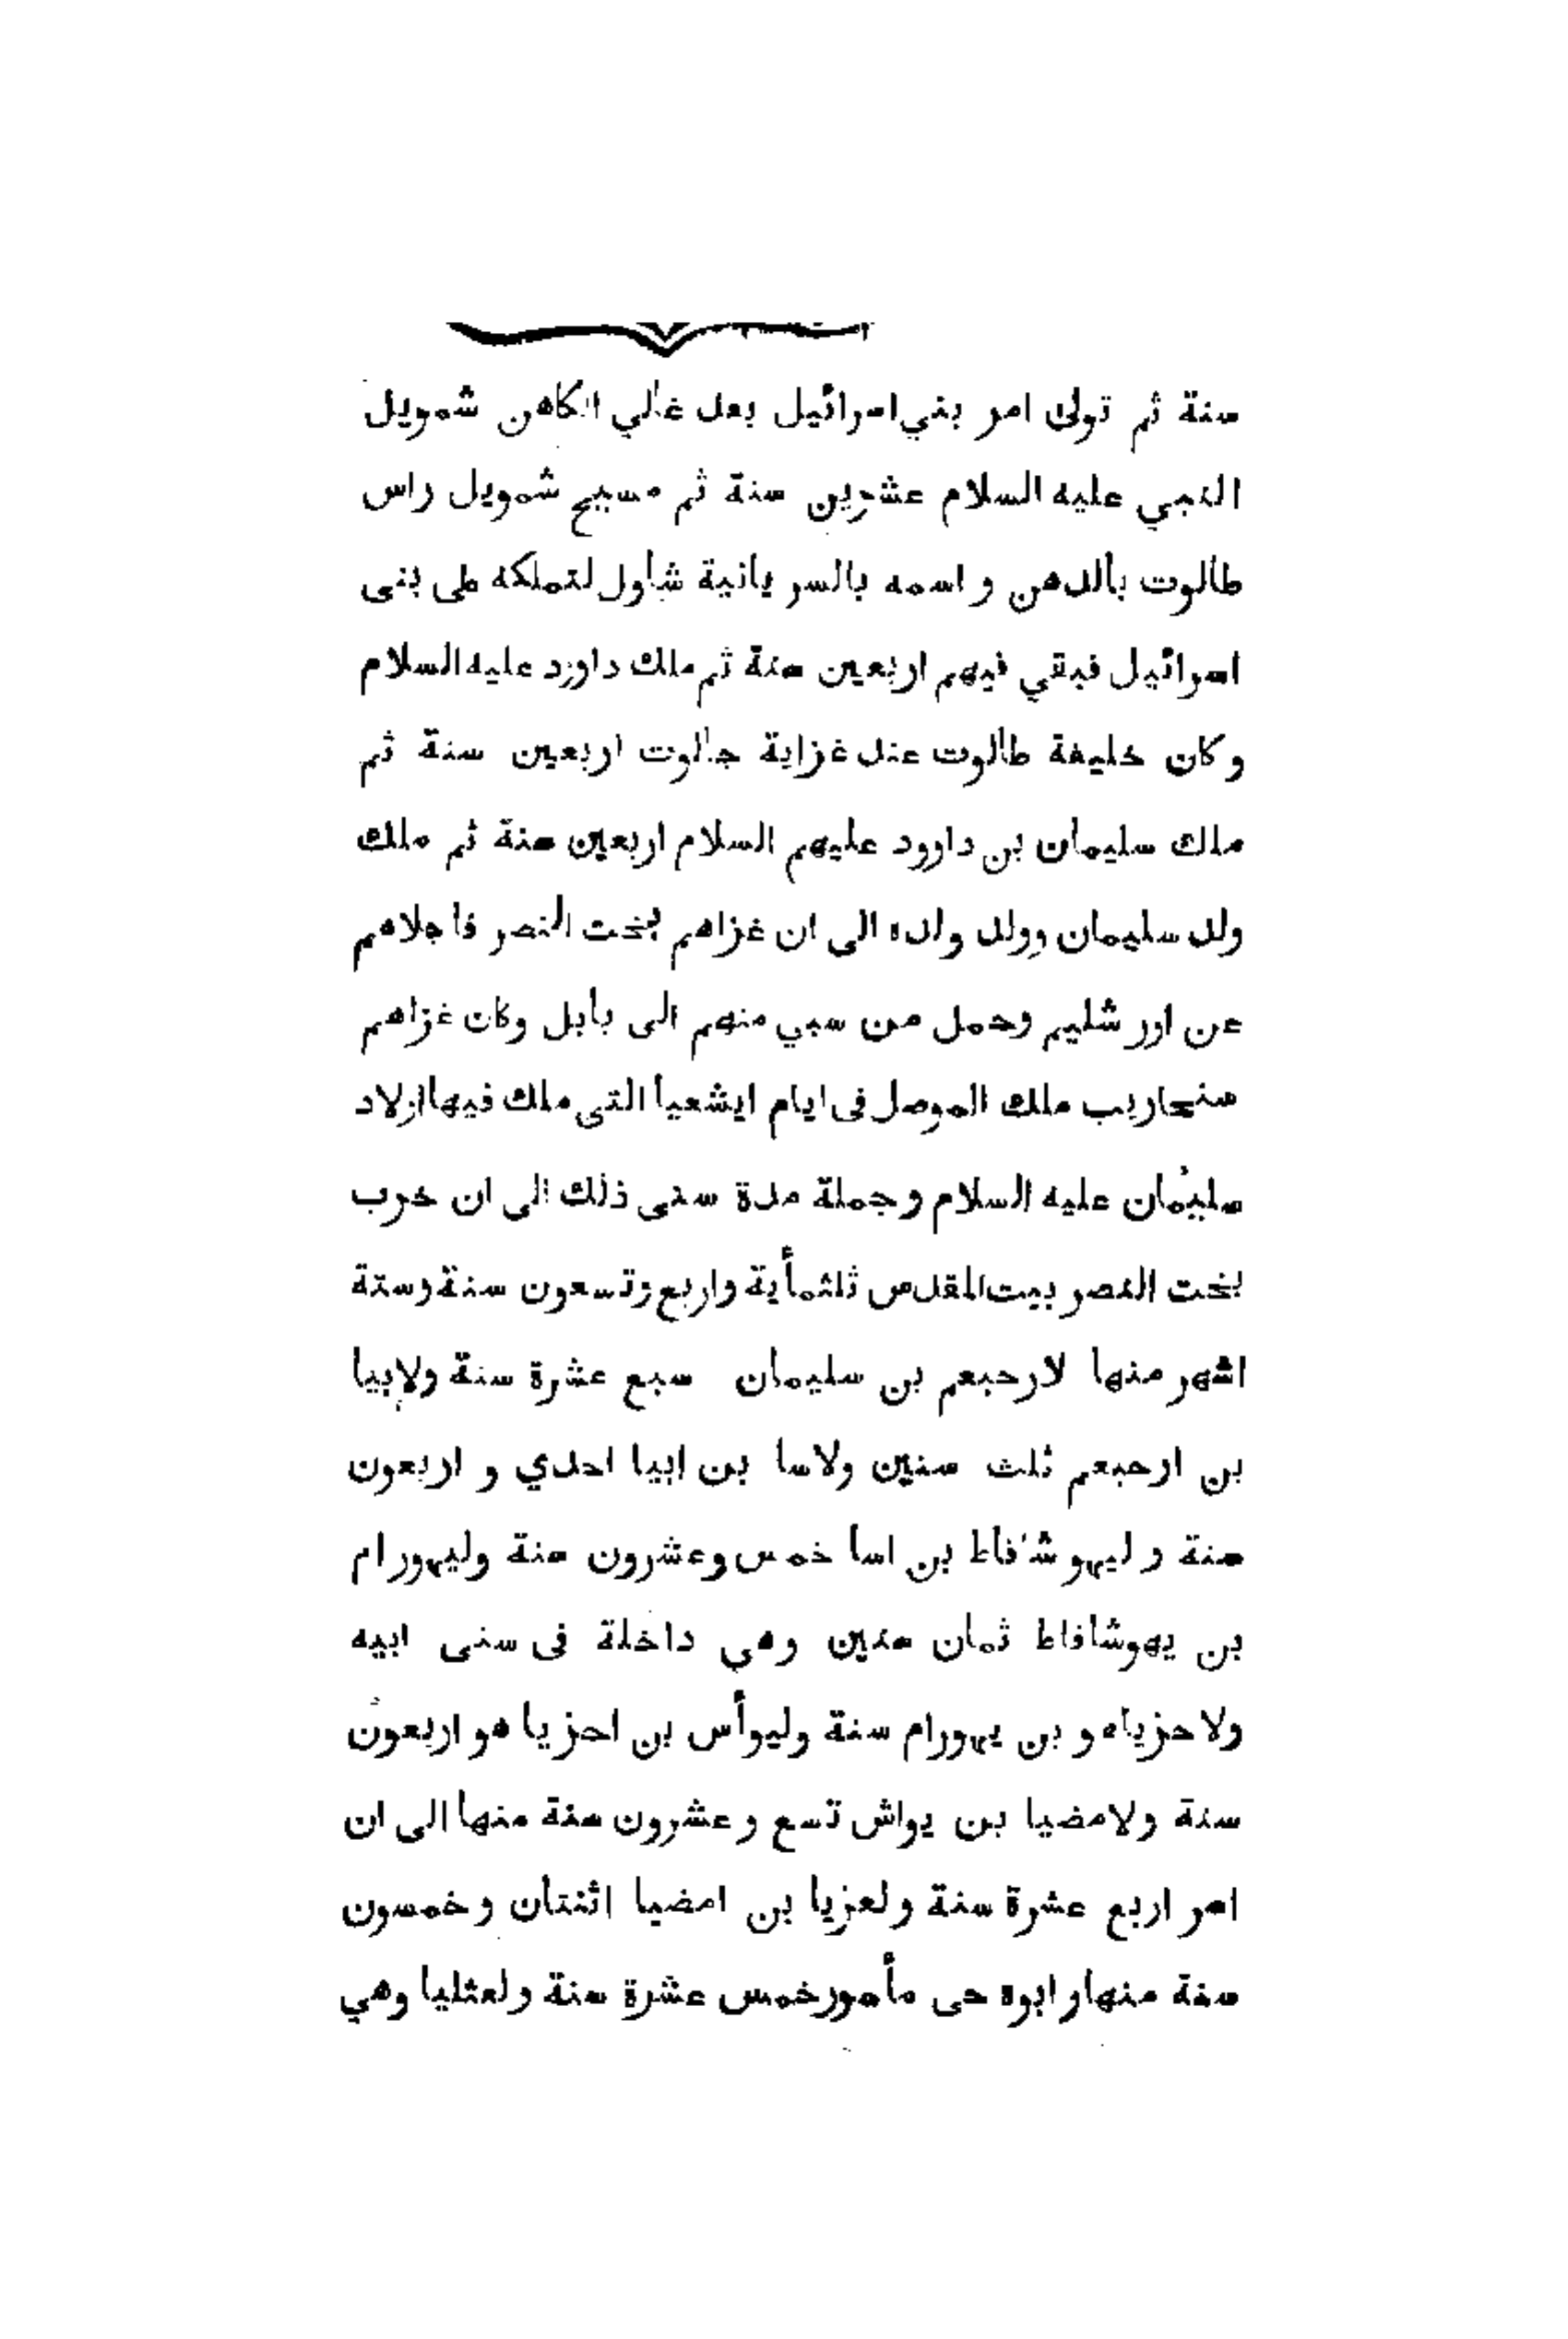 سنة ثم تولى امر بني اسرائيل بعد غالي الكاهن شمويل
النبي عليه السلام عشرين سنة ثم مسيح شمويل راس
طالوت بالدهن و اسمه بالسر يانية شاول لتملكه على بنى
اسرائيل فبقي فيهم اربعين سنة ثم ملك داورد عليه السلام
وكان خليفة طالوت عند غزاية جالوت اربعين سنة ثم
ملك سليمان بن داوود عليهم السلام اربعين سنة ثم ملك
ولد سليمان وولد ولده الى ان غزاهم بخت النصر فاجلاهم
عن اور شليم وحمل من سبي منهم الى بابل وكان غزاهم
سنحاريب ملك الموصل فى ايام ايشعيا التى ملك فيها اولاد
سليمان عليه السلام وجملة مدة سنى ذلك الى ان خرب
بخت النصر بيت المقدس ثلثمأية واربع وتسعون سنة وستة
اشهر منها لارحبعم بن سليمان سبع عشرة سنة ولابيا
بن ارحبعم ثلث سنين ولاسا بن ابيا احدي و اربعون
سنة و ليهو شافاط بن اسا خمس وعشرون سنة وليهورام
بن يهوشافاط ثمان سنين وهي داخلة فى سنى ابيه
ولاحزياهو بن يهورام سنة وليوأس بن احزيا هو اربعون
سنة ولامضيا بن يواش تسع وعشرون سنة منها الى ان
اسر اربع عشرة سنة ولعزيا بن امضيا اثنتان وخمسون
سنة منها وابوه حى مأسور خمس عشرة سنة ولعثليا وهي